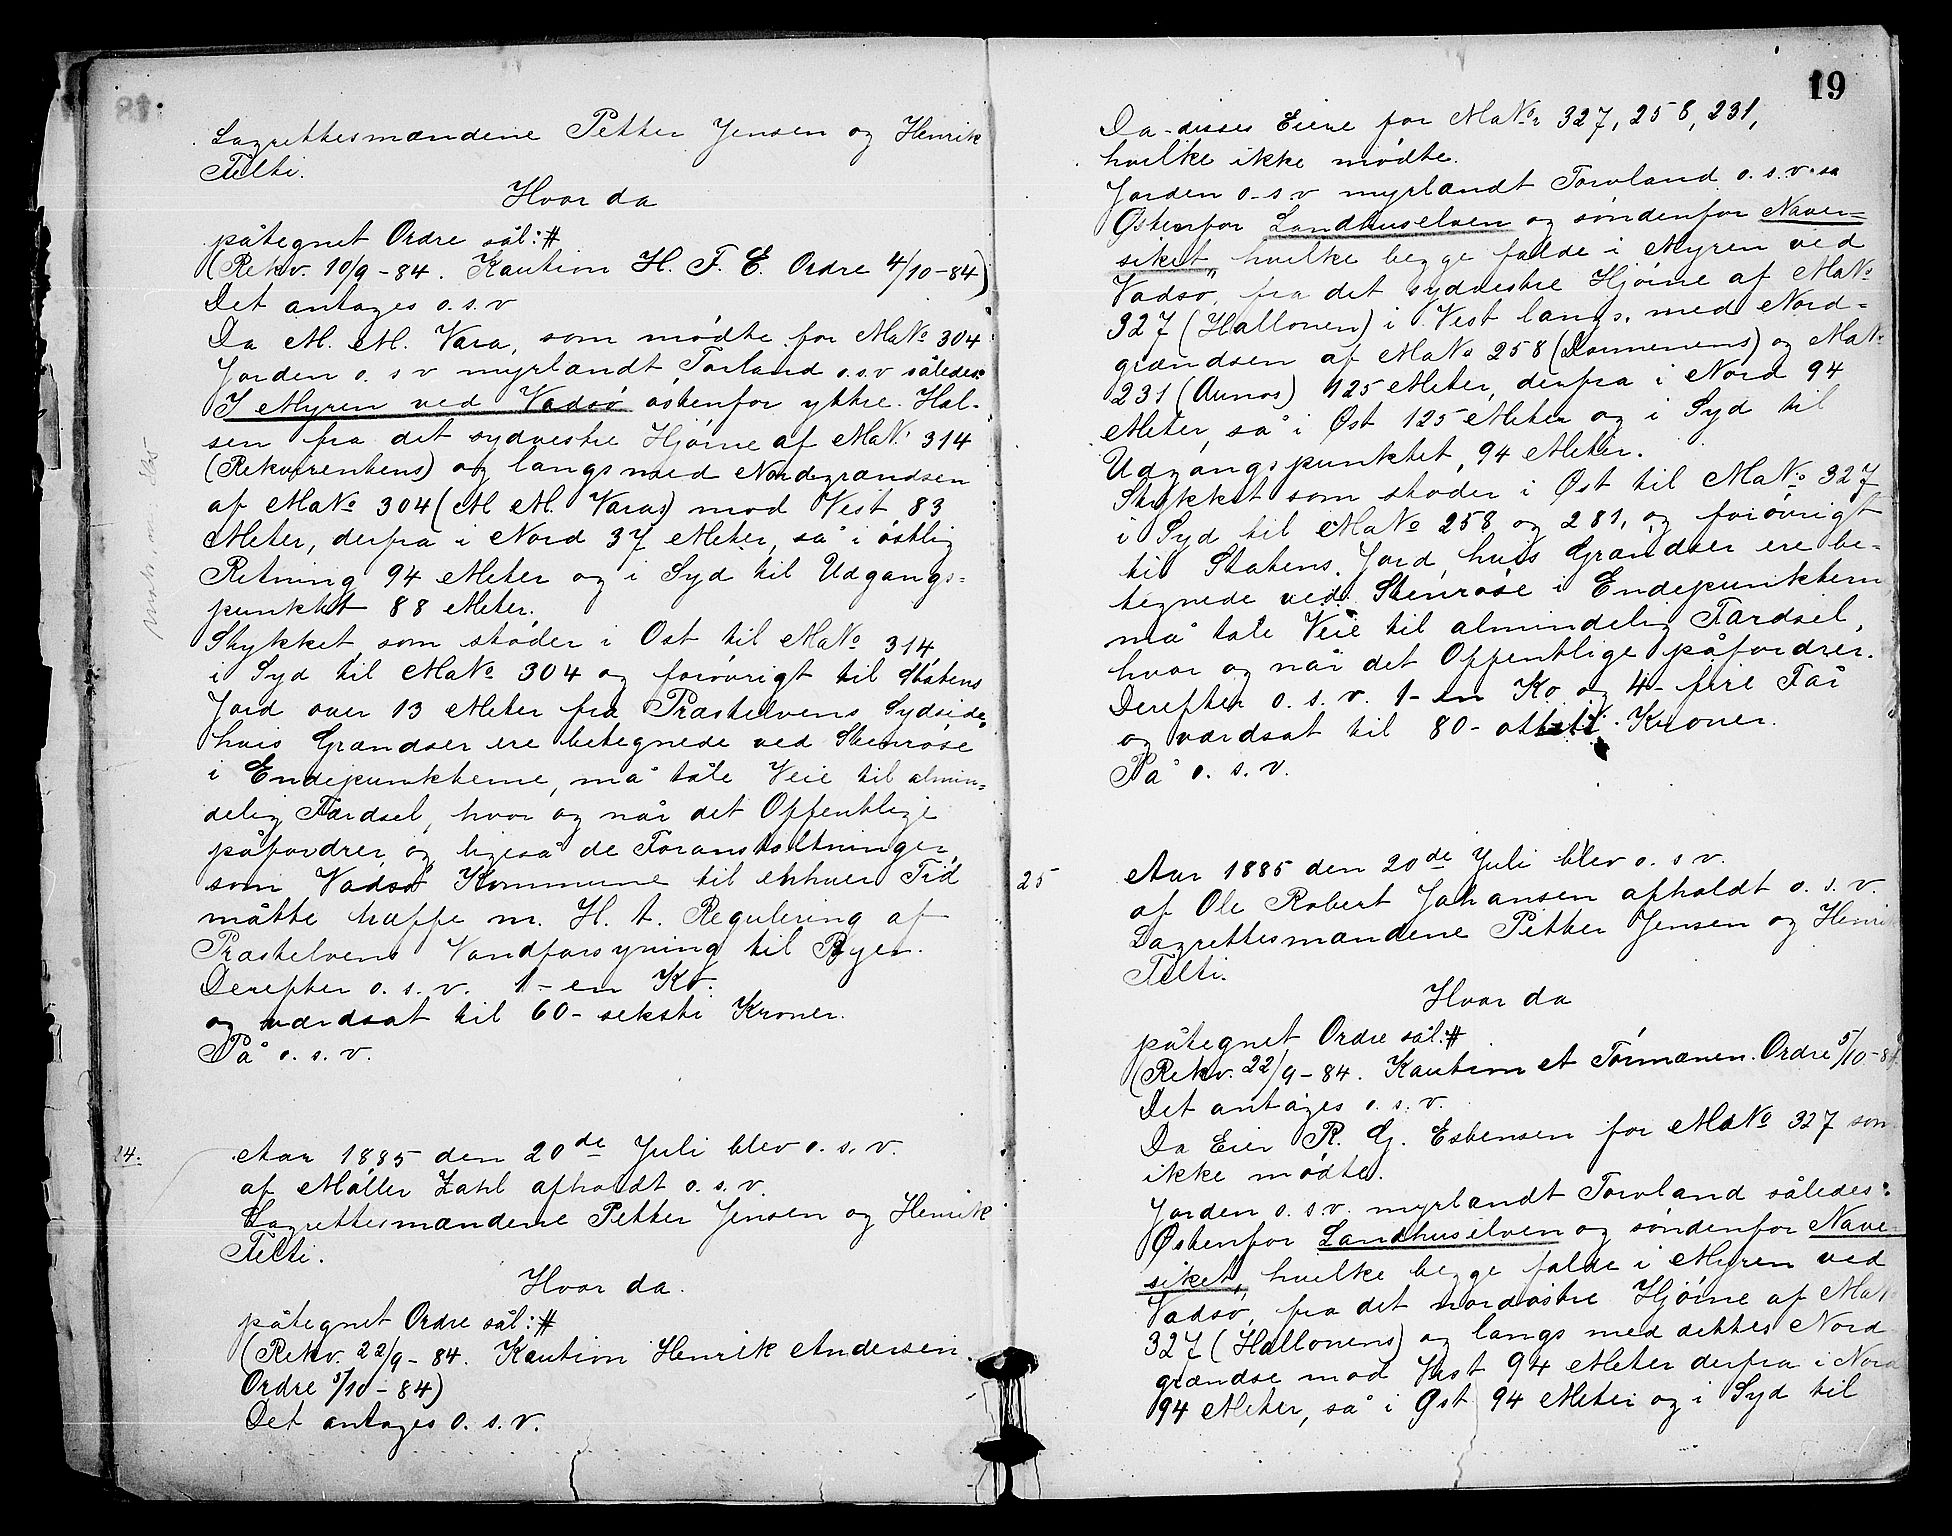 Lagrettesmændene Petter Jensen og Henrik
Tilti.
Hvor da
påtegnet Ordre sål:#
(Rekv. 10/9-84. Kaution H. F. E. Ordre 4/10-84)
Det antages o.s.v
Da M. M. Vara, som mødte for MaNo 304
Jorden o. s v myrlændt Torland o.s.v således:
I Myren ved Vadsø østenfor yttre Hal-
sen fra det sydvestre Hjørne af MaN. 314
(Rekvirentens) og langsmed Nordgrændsen
af MaNo 304 (M M. Varas) mod Vest 83
Meter, derfra i Nord 37 Meter, så i østlig
Retning 94 Meter og i Syd til Udgangs=
punktet 88 Meter.
Stykket, som støder i Øst til MaNo 314,
i Syd til MaNo 304 og forøvrigt til Statens
Jord over 13 Meter fra Præstelvens Sydside,
hvis Grændser ere betegnede ved Stenrøse
i Endepunkterne, må tåle Veie til almin=
delig Færdsel, hvor og når det Offentlige
påfordrer og ligeså de Foranstaltninger,
som Vadsø Kommune til enhver Tid
måtte træffe m. H. t. Regulering af
Præstelvens Vandforsyning til Byen.
Derefter o. s. v. 1-en Ko.
og værdsat til 60- seksti Kroner.
På o. s. v.
24.
Aar 1885 den 20de Juli blev o. s. v.
af Møller Zahl afholdt o. s. v.
Lagrettesmændene Petter Jensen og Henrik
Tilti.
Hvor da.
påtegnet Ordre sål:#
(Rekv. 22/9-84. Kaution Henrik Andersen.
Ordre 5/10-84)
Det antages o. s. v.
19
Da disses Eiere for MaNo 327, 258, 231,
hvilke ikke mødte.
Jorden o-s-v myrlændt Torvland o. s. v. sa
Østenfor Landhuselven og søndenfor Naver=
siket, hvilke begge falde i Myren ved
Vadsø, fra det sydvestre Hjørne af MaNo
327 (Hallonen) i Vest langs med Nord=
grændsen af MaNo 258 (Dommenens) og MaN
231 (Aunos) 125 Meter, derfra i Nord 94
Meter, så i Øst 125 Meter og i Syd til
Udgangspunktet, 94 Meter.
Stykket som støder i Øst til MaNo 327
i Syd til MaNo 258 og 231, og forøvrigt
til Statens Jord, hvis Grændser ere be-
tegnede ved Stenrøse i Endepunktern
må tåle Veie til almindelig Færdsel,
hvor og når det Offentlige påfordrer.
Derefter o. s. v. 1-en Ko og 4- fire Får
og værdsat til 80- otteti Kroner.
På o. s. v.
25
Aar 1885 den 20de Juli blev o. s v.
af Ole Robert Johansen afholdt o. s. v.
Lagrettesmændene Petter Jensen og Henri
Tilti.
Hvor da
påtegnet Ordre sål:#
(Rekv. 22/9-84. Kaution A Törmænen. Ordre 5/10-84
Det antages o. s. v.
Da Eier R. G. Esbensen for MaNo 327 som
ikke mødte.
Jorden o. s v. myrlændt Torvland således:
Østenfor Landhuselven og søndenfor Nave-
siket, hvilke begge falde i Myren ved
Vadsø, fra det nordøstre Hjørne af MaN
327 (Hallonens) og langs med dettes Nord
grændse mod Vest 94 Meter derfra i Nord
94 Meter, så i Øst 94 Meter og i Syd til